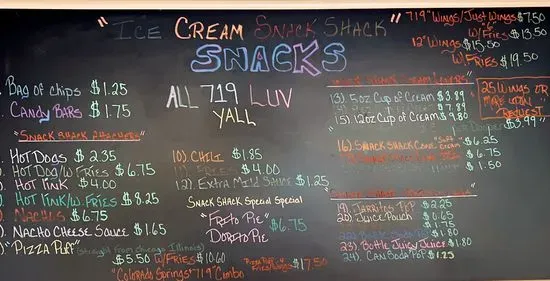 "ICE CREAM SNACK SHACK"
SNACKS
ALL 719 LUV
YALL
Bag of chips $1.25
Candy Bars $1.75
"Snack Shack
Hot Dogs $2.35
Hot Dog/w Fries $6.75
Hot Link $4.00
Hot Link/w. Fries $8.25
Nachos $6.75
Nacho Cheese Sauce $1.65
"Pizza Puff" (straight from Chicago Illinois)
$5.50 W/Fries $10.60
"Colorado Springs "719" Combo
Pizza Puff w/
Fries/Wings $17.50
10). Chili $1.85
Fries $4.00
12). Extra Mild Sauce $1.25
Snack Shack Special Special
"Frito Pie"
Dorito Pie
$6.75
719" Wings/Just Wings $7.50
"6"
W/Fries $13.50
12" Wings
$15.50
W/Fries $19.50
25 Wings or
More upon
Request
13). 5oz Cup of Cream $3.89
$7.89
15). 12oz Cup of Cream $9.80
$3.99"
16). Snack Shack Cone "Soft Cream $6.25
$6.75
$1.50
19). Jarritos Pop $2.25
20). Juice Pouch $0.65
$1.75
$1.80
23). Bottle Juicy Juice $1.80
24). Can Soda Pop $1.25